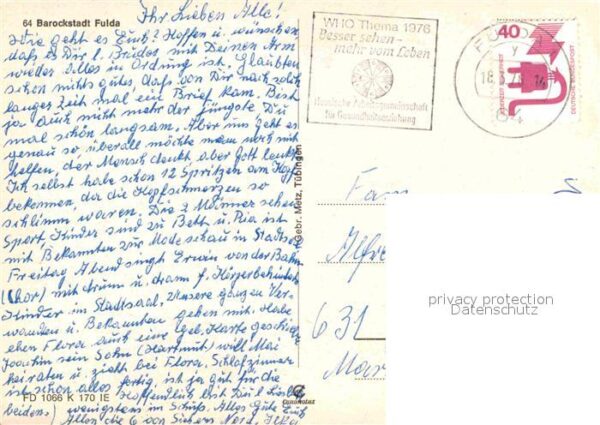 64 Barockstadt Fulda
Ihr Lieben Alle!
Wie geht es Euch? Hoffen u. wünschen,
daß es Dir l. Bruder mit Deinem Arm
wieder alles in Ordnung ist. Glaubten
schon nichts gutes, daß von Dir nach solch
langer Zeit mal ein Brief kam. Bist
ja auch nicht mehr der jüngste Du
mal schön langsam. Aber uns geht es
genau so, überall möchte man noch mit
helfen, der Mensch denkt aber Gott lenkt.
Ich selbst habe schon 12 Spritzen am Kopf
bekommen, da die Kopfschmerzen so
schlimm waren. Die 2 Männer sehen
Sport, Kinder sind zu Bett u. Pia ist
mit Bekannten zur Modeschau in Stadtsaal
Freitag Abend singt Erwin von der Bahn
(Chor) mit drum u. dram f. Körperbehinderte
Kinder im Stadtsaal. Unsere ganzen Ver-
wanden u. Bekannten gehen mit. Habe
eben Flora auch eine Geb. Karte geschickt
Joachim sein Sohn (Hartmut) will Mai
heiraten u. zieht bei Flora. Schlafzimmer
ist schon alles fertig, ist ja gut für die
beiden) Hoffentlich
wenigstens im Schuß. Alles Gute Euch
Allen die 6 von
FD 1066 K 170 IE
Gebr. Metz, Tübingen
WHO Thema 1976
Besser sehen -
mehr vom Leben
Hessische Arbeitsgemeinschaft
für Gesundheitserziehung
FULDA
18.3.76
40
DEUTSCHE BUNDESPOST
Fam
Alfre
631
Mar
privacy protection
Datenschutz